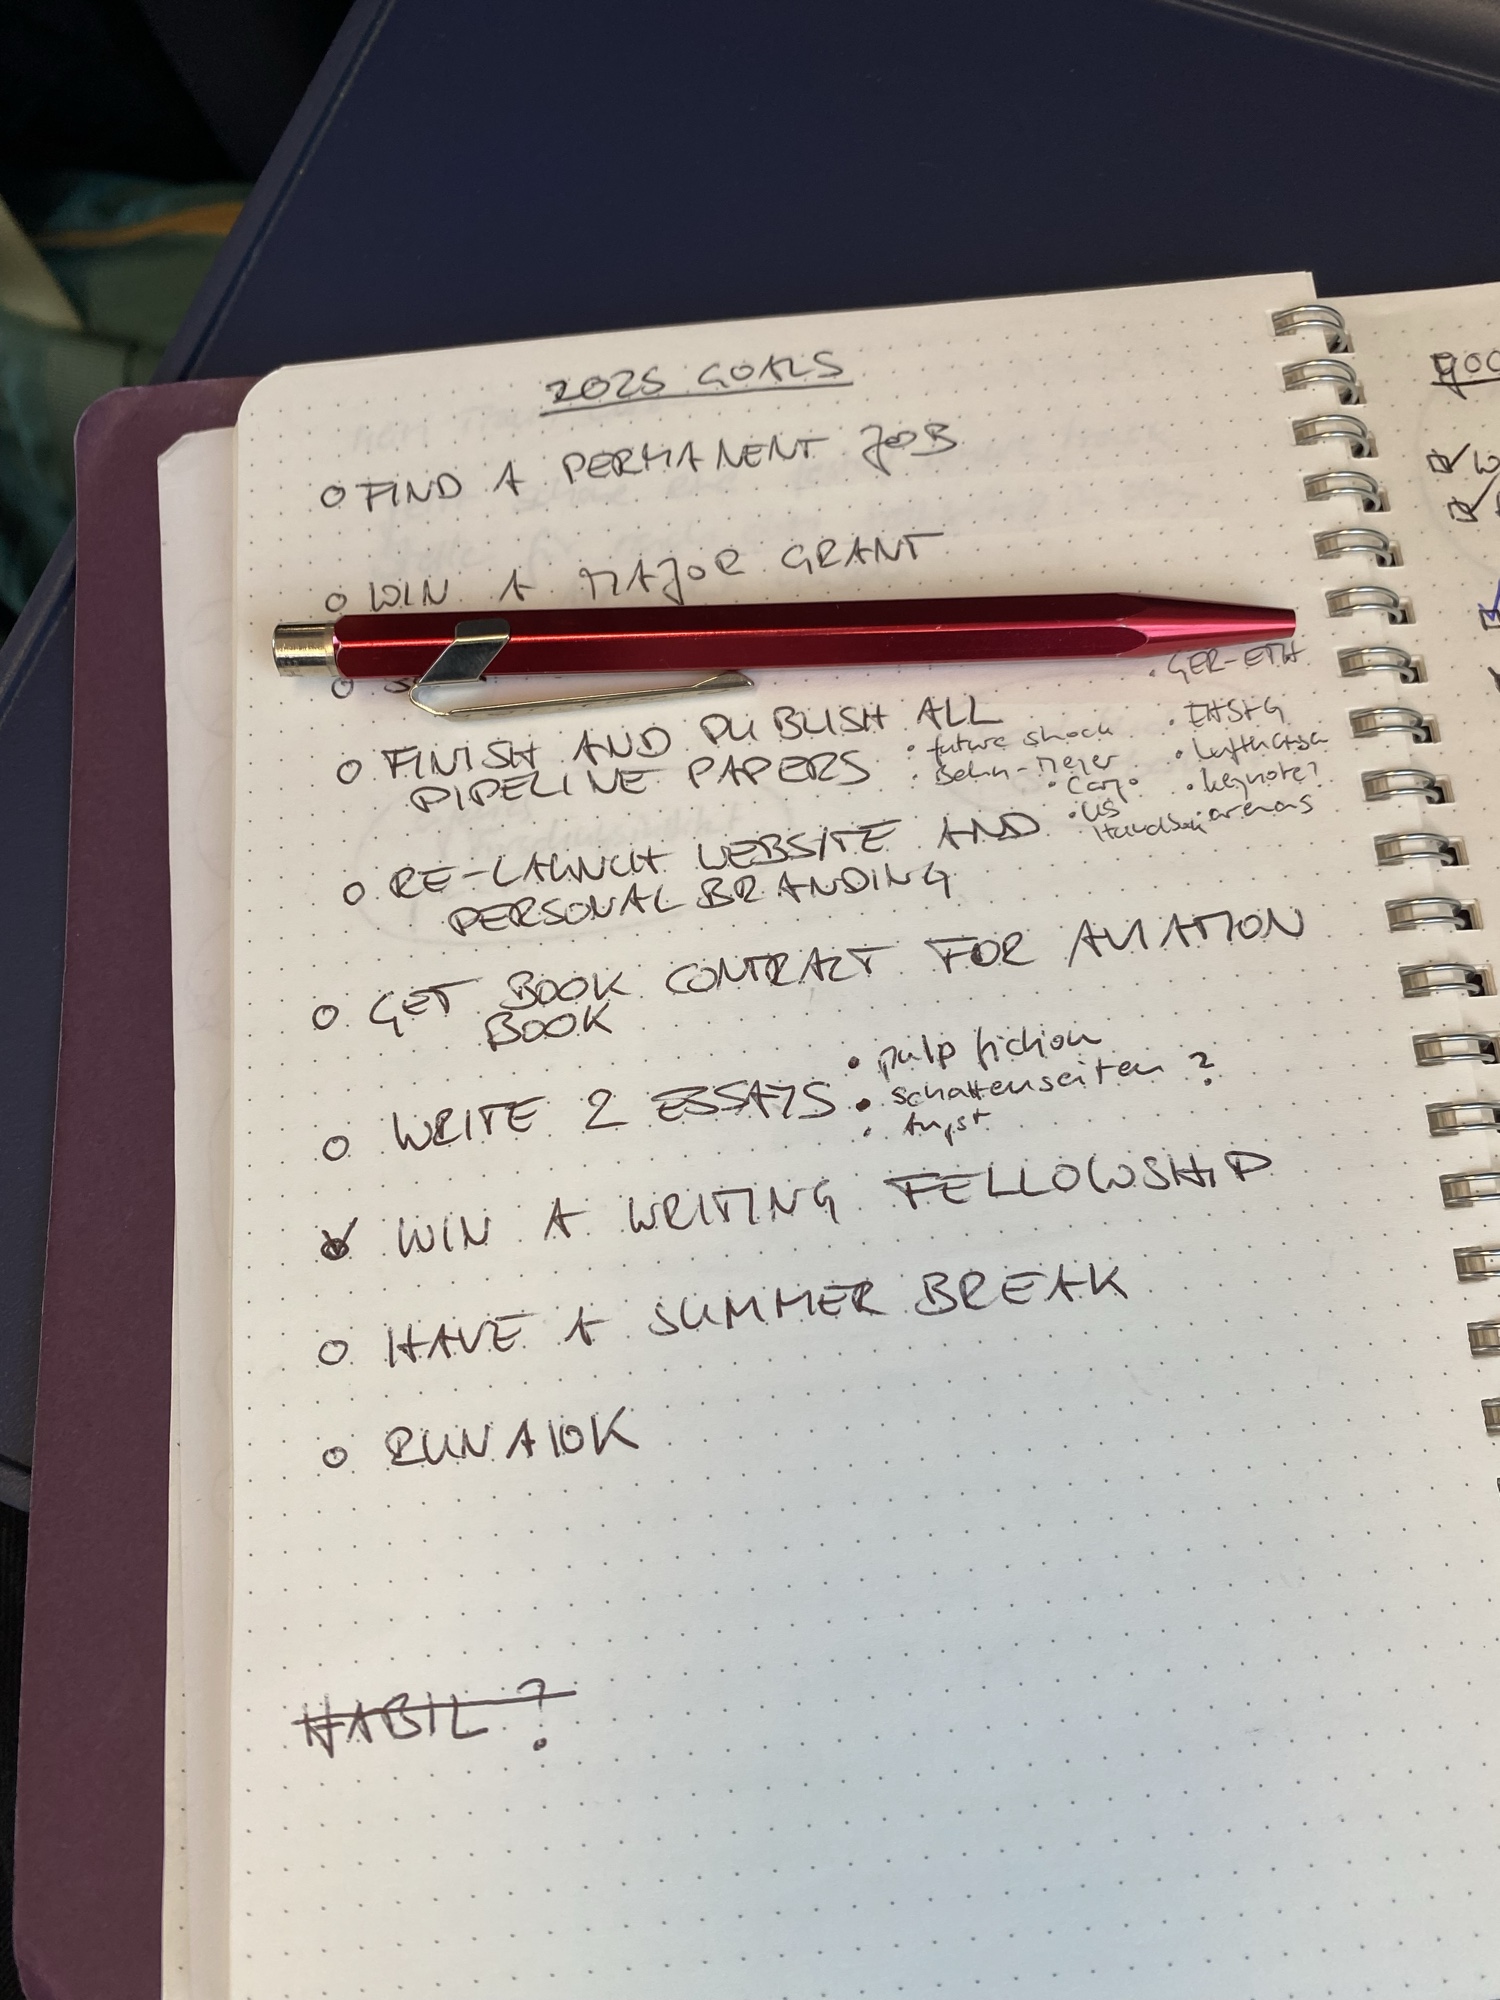 2025 GOALS
o FIND A PERMANENT JOB
o WIN A MAJOR GRANT
o
o FINISH AND PUBLISH ALL
PIPELINE PAPERS
• future shock
• Behn-Meyer
• Cargo
• US
Handbook
• GER-ETH
• EHSAG
• Lufthansa
• keynote?
• arenas
o RE-LAUNCH WEBSITE AND
PERSONAL BRANDING
o GET BOOK CONTRACT FOR AVIATION
BOOK
o WRITE 2 ESSAYS
• pulp fiction
• Schattenseiten ?
• Angst
✓ WIN A WRITING FELLOWSHIP
o HAVE A SUMMER BREAK
o RUN A 10K
HABIL ?